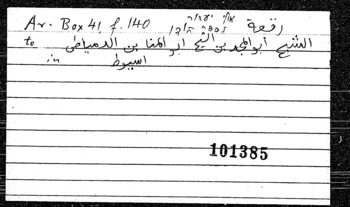 Ar. Box 41 f. 140 رقعة
to الشيخ ابو المجد بن الشيخ ابو المنا بن الدمياطي
in اسيوط
101385